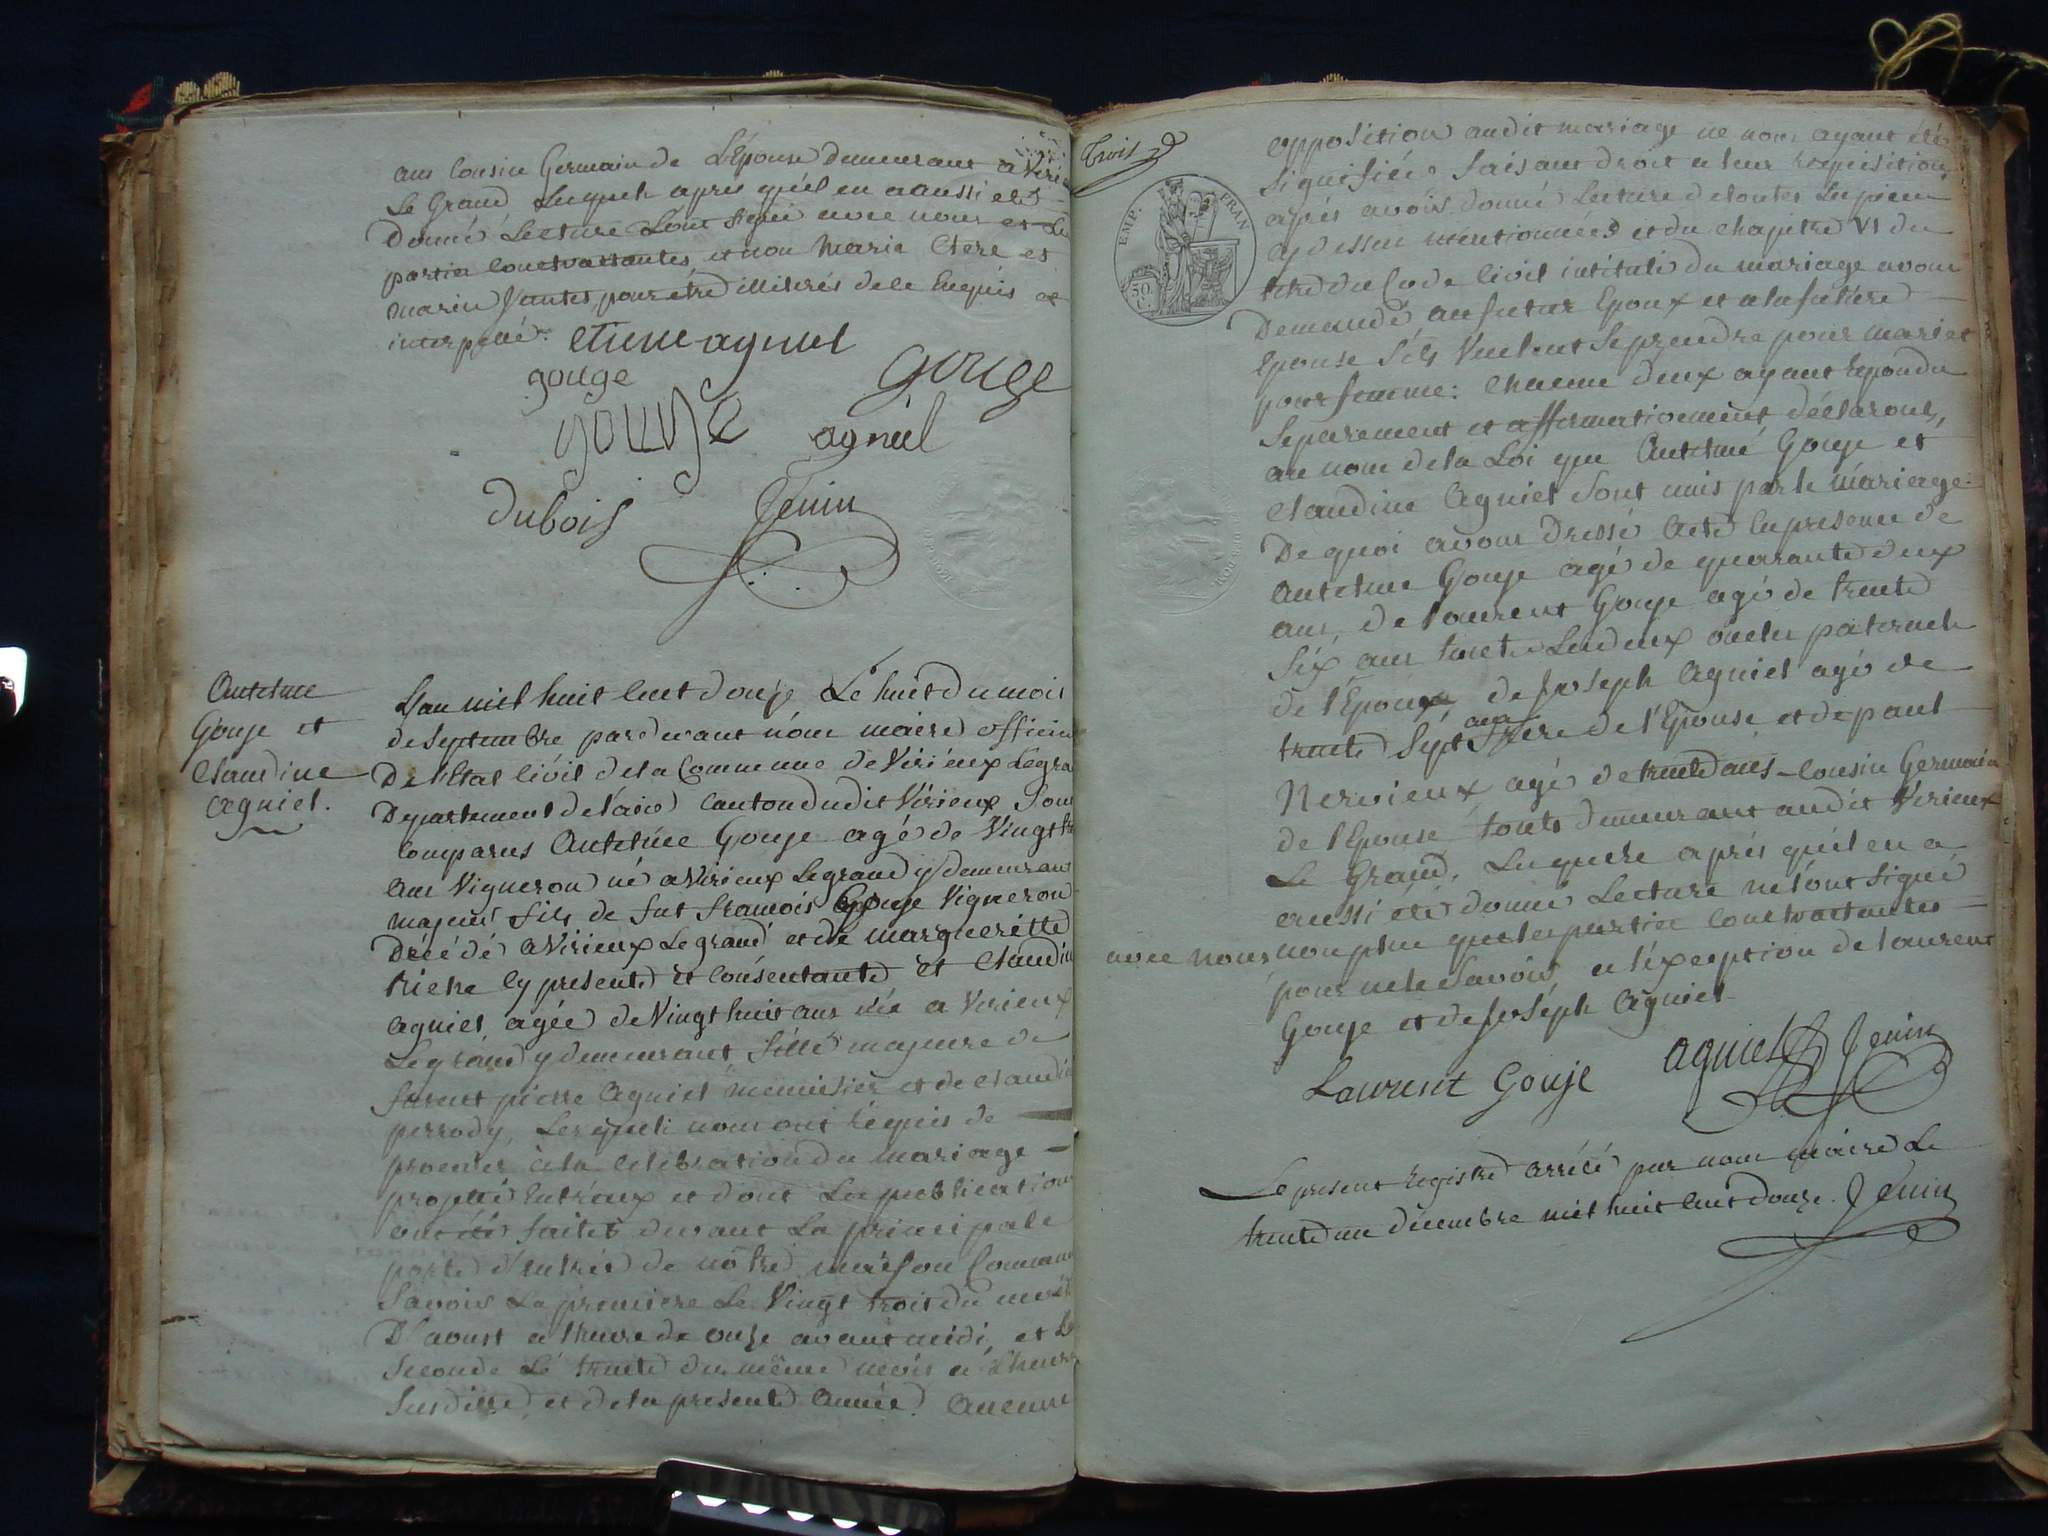 ans Cousin Germain de L'Epouse demeurant a Viri
Le Grand Lesquels après qu'il en a aussi été
donné Lecture L'ont signé avec nous et Les
parties Contractantes et non Marie Clere et
marie Jantet, pour être illiterés de ce Enquis et
interpellé.
etienne agniel
gouge
gouge
gouge
agniel
dubois
Jenin
Antelme
Gouje et
Claudine
agniel.
L'an mil huit Cent douze Le huit du mois
de Septembre pardevant nous maire officier
De l'Etat Civil dela Commune de Virieux Legra
Departement de l'ain Canton dudit Virieux Sont
Comparus Antelme Gouje agé de Vingt
ans Vigneron né a Virieux Legrand y demeurant
majeur fils de fut francois Gouje Vigneron
Décédé a Virieux Le grand et de margueritte
triche Cy presente et Consentante et Claudin
agniel agée de Vingt huit ans née a Virieux
Legrand y demeurant fille majeure de
furent pierre Agniel menuisier et de Claudi
perrody, Lesquels nous ont requis de
proceder à la Celebration du mariage
projetté Entr'eux et dont Les publications
ont été faites devant La principale
porte d'entrée de nôtre maison Commune
Savoir La premiere Le Vingt trois du mois
D'aoust a l'heure de onze avant midi, et La
Seconde Le trente du même mois a L'heure
Susditte et dela presente Année. Aucune
Trois
EMP. FRAN
50 C.
opposition audit mariage ne nous ayant été
Signifiée faisant droit a leur requisition
après avoir donné Lecture de toutes Les pieces
cy dessus mentionnées et du Chapitre VI du
titre du Code Civil intitulé du mariage avons
Demandé au futur Epoux et a la future
Epouse S'ils Veulent Se prendre pour mari et
pour femme: Chacun d'eux ayant repondu
Separement et affirmativement, déclarons,
au nom de la Loi que Antelme Gouje et
Claudine Agniel Sont unis par le mariage.
De quoi avons Dressé Acte En presence de
Antelme Gouje agé de quarante deux
ans, de Laurent Gouje agé de trente
Six ans tous Les deux oncles paternels
de l'Epoux de Joseph Agniel agé de
trente Sept ans frere de l'Epouse, et de paul
Nervieux agé de trente ans Cousin Germain
de l'Epouse tous demeurant audit Virieux
Le Grand, Lesquels après qu'il en a
aussi été donné Lecture ne l'ont Signé
avec nous non plus que les parties Contractantes
pour ne le Savoir a l'éxception de Laurent
Gouje et de Joséph Agniel
Laurent Gouje agniel Jenin
Le present registre arrêté par nous maire Le
trente un décembre mil huit Cent douze. Jenin